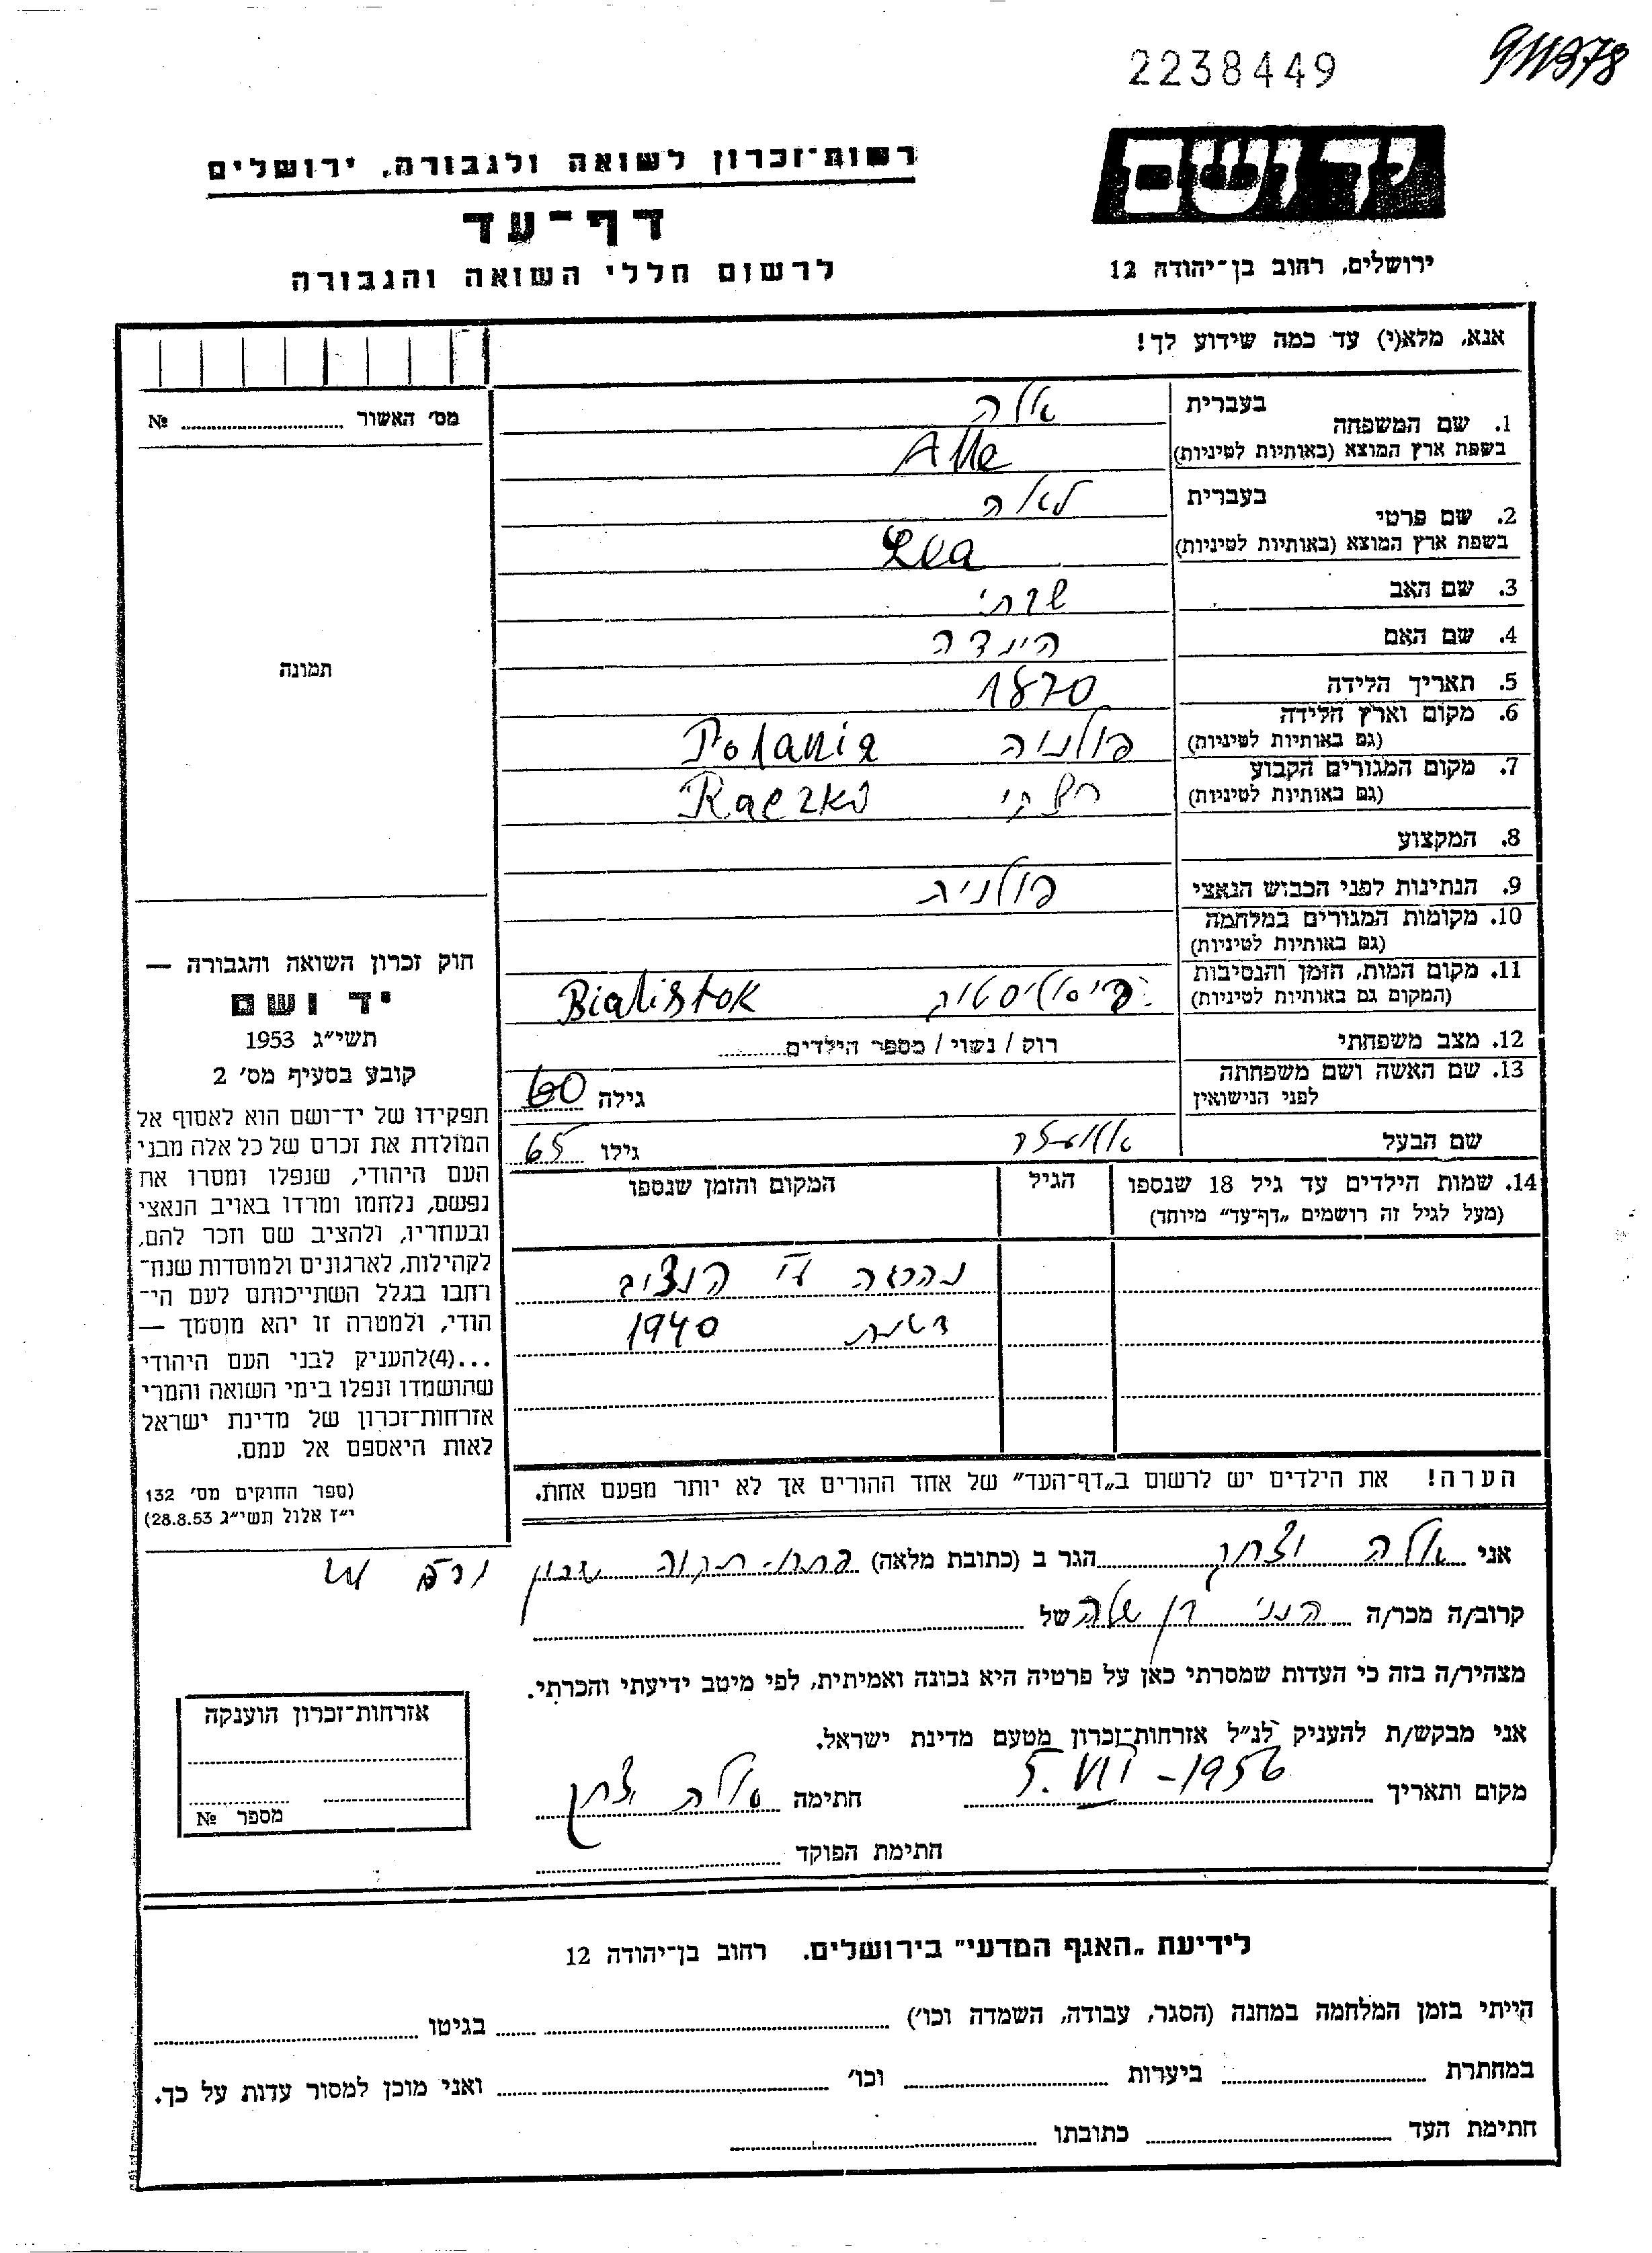 2238449
ידושם
רשות־זכרון לשואה ולגבורה, ירושלים
דף־עד
לרשום חללי השואה והגבורה
ירושלים, רחוב בן־יהודה 12
אנא, מלא(י) עד כמה שידוע לך!
מס׳ האשור № 
1. שם המשפחה
בעברית אלה
בשפת ארץ המוצא (באותיות לטיניות) Alle
2. שם פרטי
בעברית לאה
בשפת ארץ המוצא (באותיות לטיניות) Lea
3. שם האב שבתי
4. שם האם הינדה
5. תאריך הלידה 1870
6. מקום וארץ הלידה
(גם באותיות לטיניות) פולניה Polania
7. מקום המגורים הקבוע
(גם באותיות לטיניות) רצקי Raczko
8. המקצוע
9. הנתינות לפני הכבוש הנאצי פולנית
10. מקומות המגורים במלחמה
(גם באותיות לטיניות)
11. מקום המות, הזמן והנסיבות
(המקום גם באותיות לטיניות) Bialistok
12. מצב משפחתי רוק / נשוי / מספר הילדים
13. שם האשה ושם משפחתה
לפני הנישואין גילה 60
שם הבעל גילו 65
14. שמות הילדים עד גיל 18 שנספו
(מעל לגיל זה רושמים „דף־עד״ מיוחד)
הגיל
המקום והזמן שנספו
נהרגה ע״י הנצים
בשנת 1940
הערה! את הילדים יש לרשום ב„דף־העד״ של אחד ההורים אך לא יותר מפעם אחת.
תמונה
חוק זכרון השואה והגבורה —
יד ושם
תשי״ג 1953
קובע בסעיף מס׳ 2
תפקידו של יד־ושם הוא לאסוף אל
המולדת את זכרם של כל אלה מבני
העם היהודי, שנפלו ומסרו את
נפשם, נלחמו ומרדו באויב הנאצי
ובעוזריו, ולהציב שם וזכר להם,
לקהילות, לארגונים ולמוסדות שנח־
רחבו בגלל השתייכותם לעם הי־
הודי, ולמטרה זו יהא מוסמך —
...(4)להעניק לבני העם היהודי
שהושמדו ונפלו בימי השואה והמרי
אזרחות־זכרון של מדינת ישראל
לאות היאספם אל עמם.
(ספר החוקים מס׳ 132
י״ז אלול תשי״ג 28.8.53)
אני אלה יצחק הגר ב (כתובת מלאה) פתח־תקוה שכון
קרוב/ה מכר/ה הנני בן שלה של
מצהיר/ה בזה כי העדות שמסרתי כאן על פרטיה היא נכונה ואמיתית, לפי מיטב ידיעתי והכרתי.
אני מבקש/ת להעניק לנ״ל אזרחות־זכרון מטעם מדינת ישראל.
מקום ותאריך 5. VII - 1956 חתימה אלה יצחק
חתימת הפוקד
אזרחות־זכרון הוענקה
מספר №
לידיעת „האגף המדעי״ בירושלים. רחוב בן־יהודה 12
הייתי בזמן המלחמה במחנה (הסגר, עבודה, השמדה וכו׳) בגיטו
במחתרת ביערות וכו׳ ואני מוכן למסור עדות על כך.
חתימת העד כתובתו